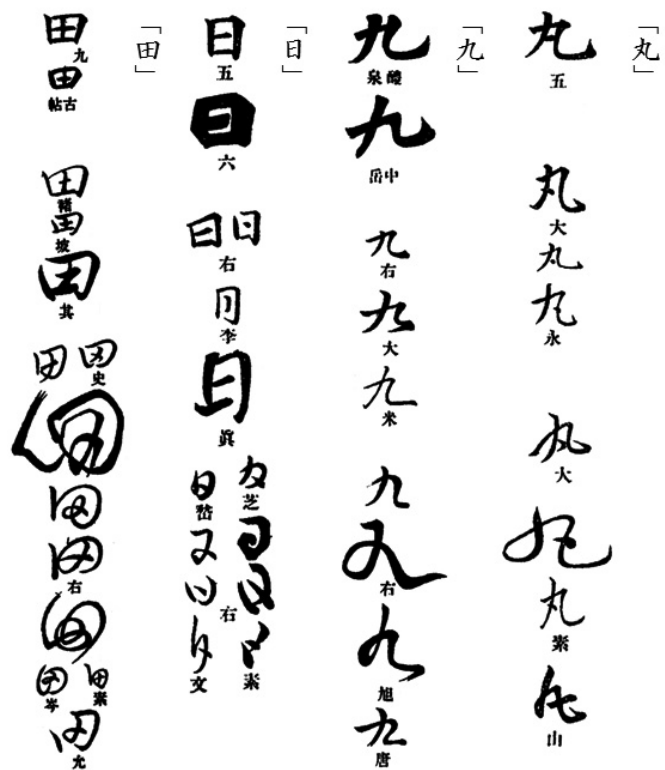 「丸」
丸五丸大丸丸永丸大丸丸素丸山
「九」
九醴泉九中岳九右九大九米九九右九旭九唐
「日」
日五日六日日右日李日眞日芝日日日日日右日素日文
「田」
田九田古帖田田坡田其田田史田田田右田田素田岑田允